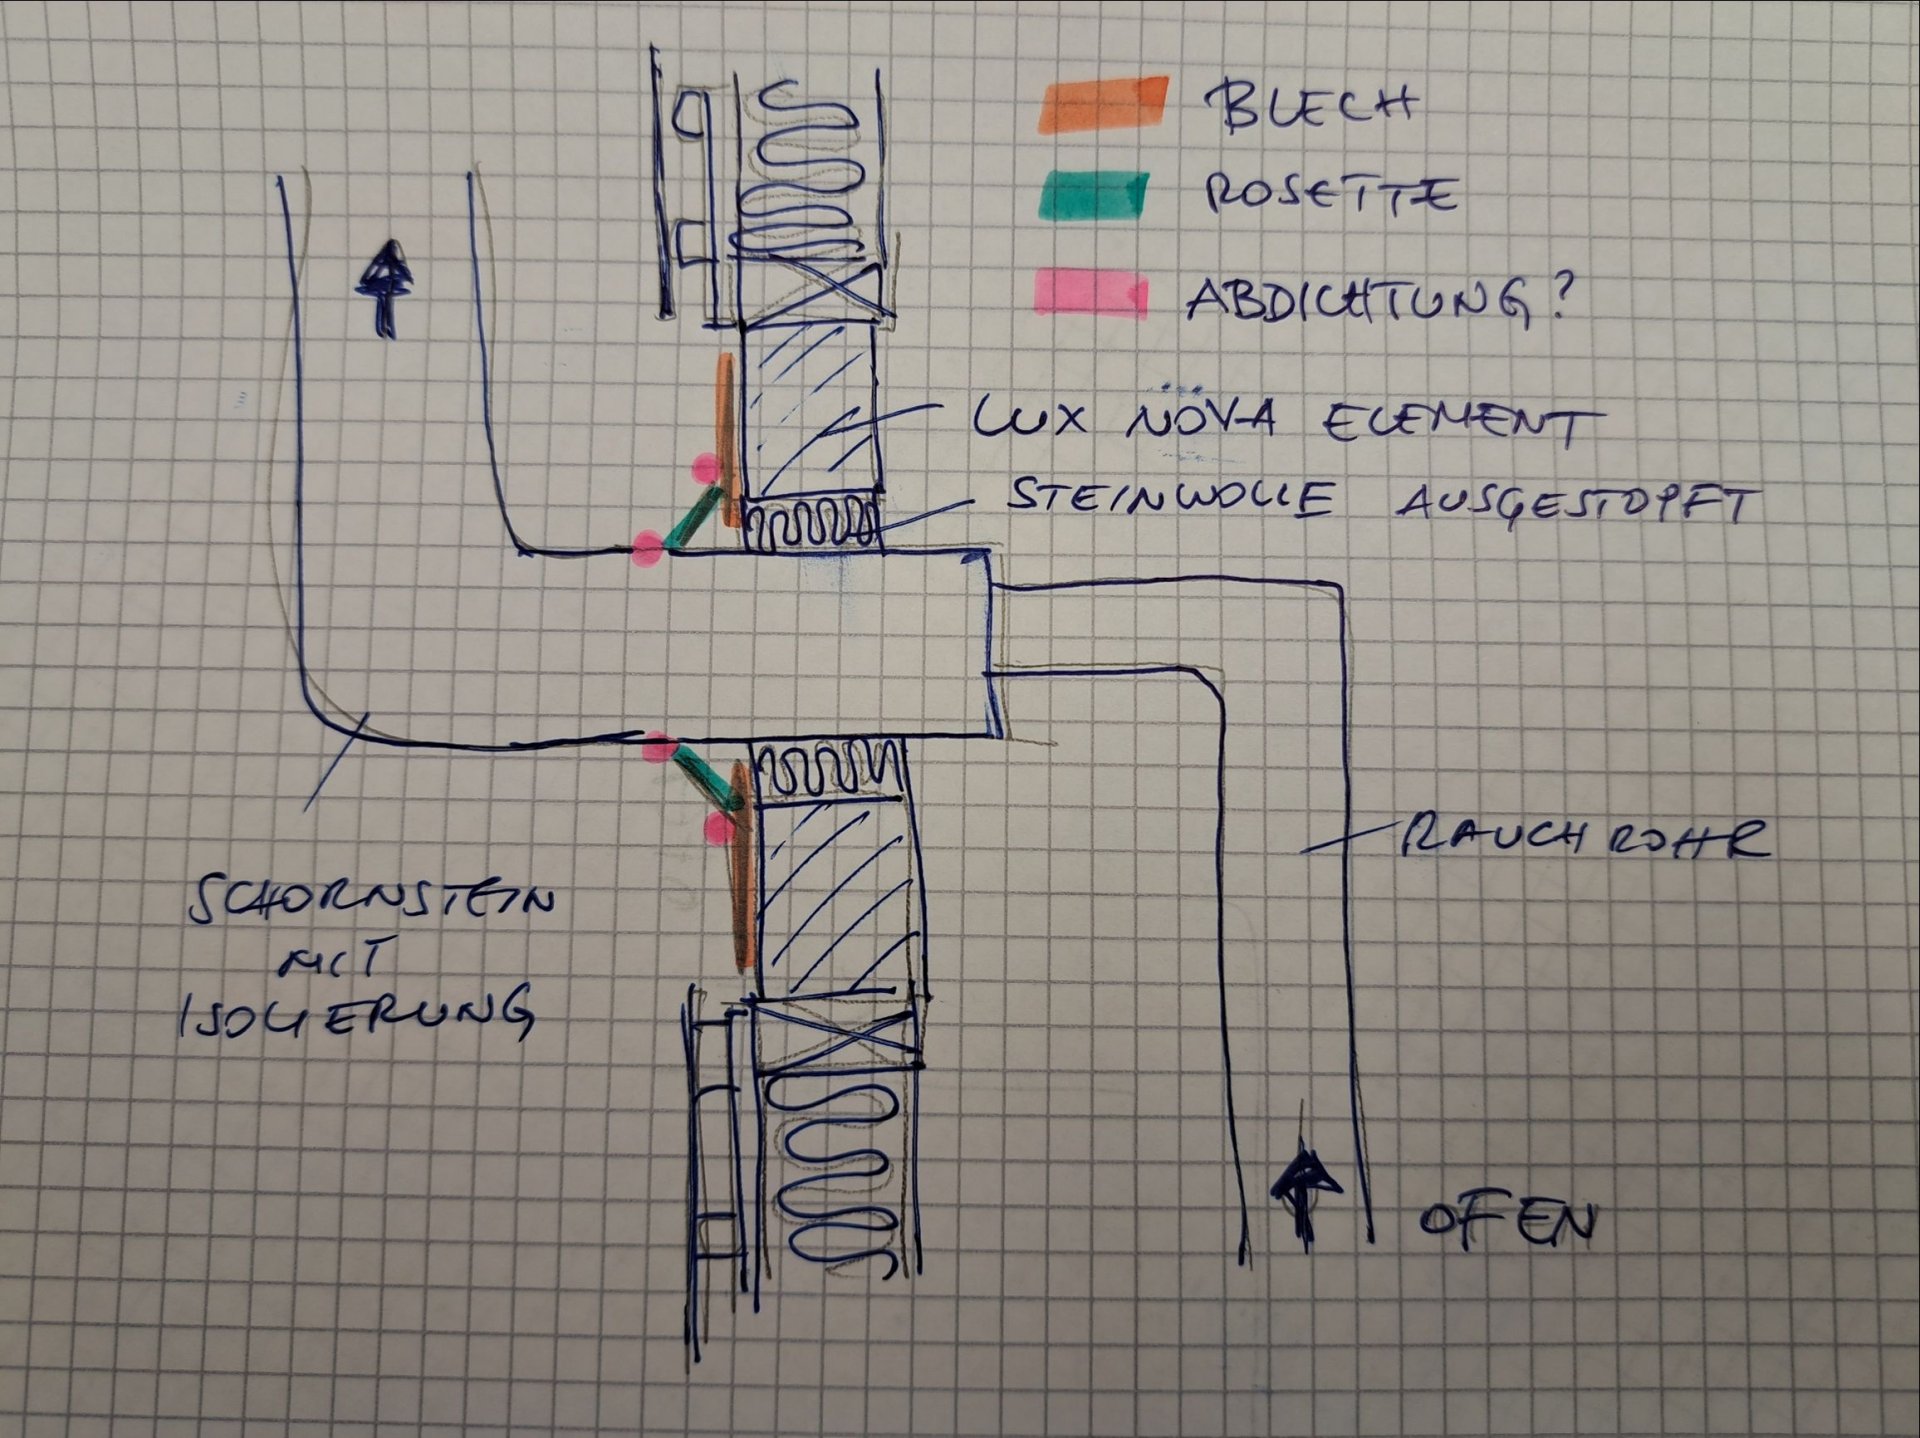 BLECH
ROSETTE
ABDICHTUNG?
LUX NOVA ELEMENT
STEINWOLLE AUSGESTOPFT
RAUCHROHR
SCHORNSTEIN
MIT
ISOLIERUNG
OFEN